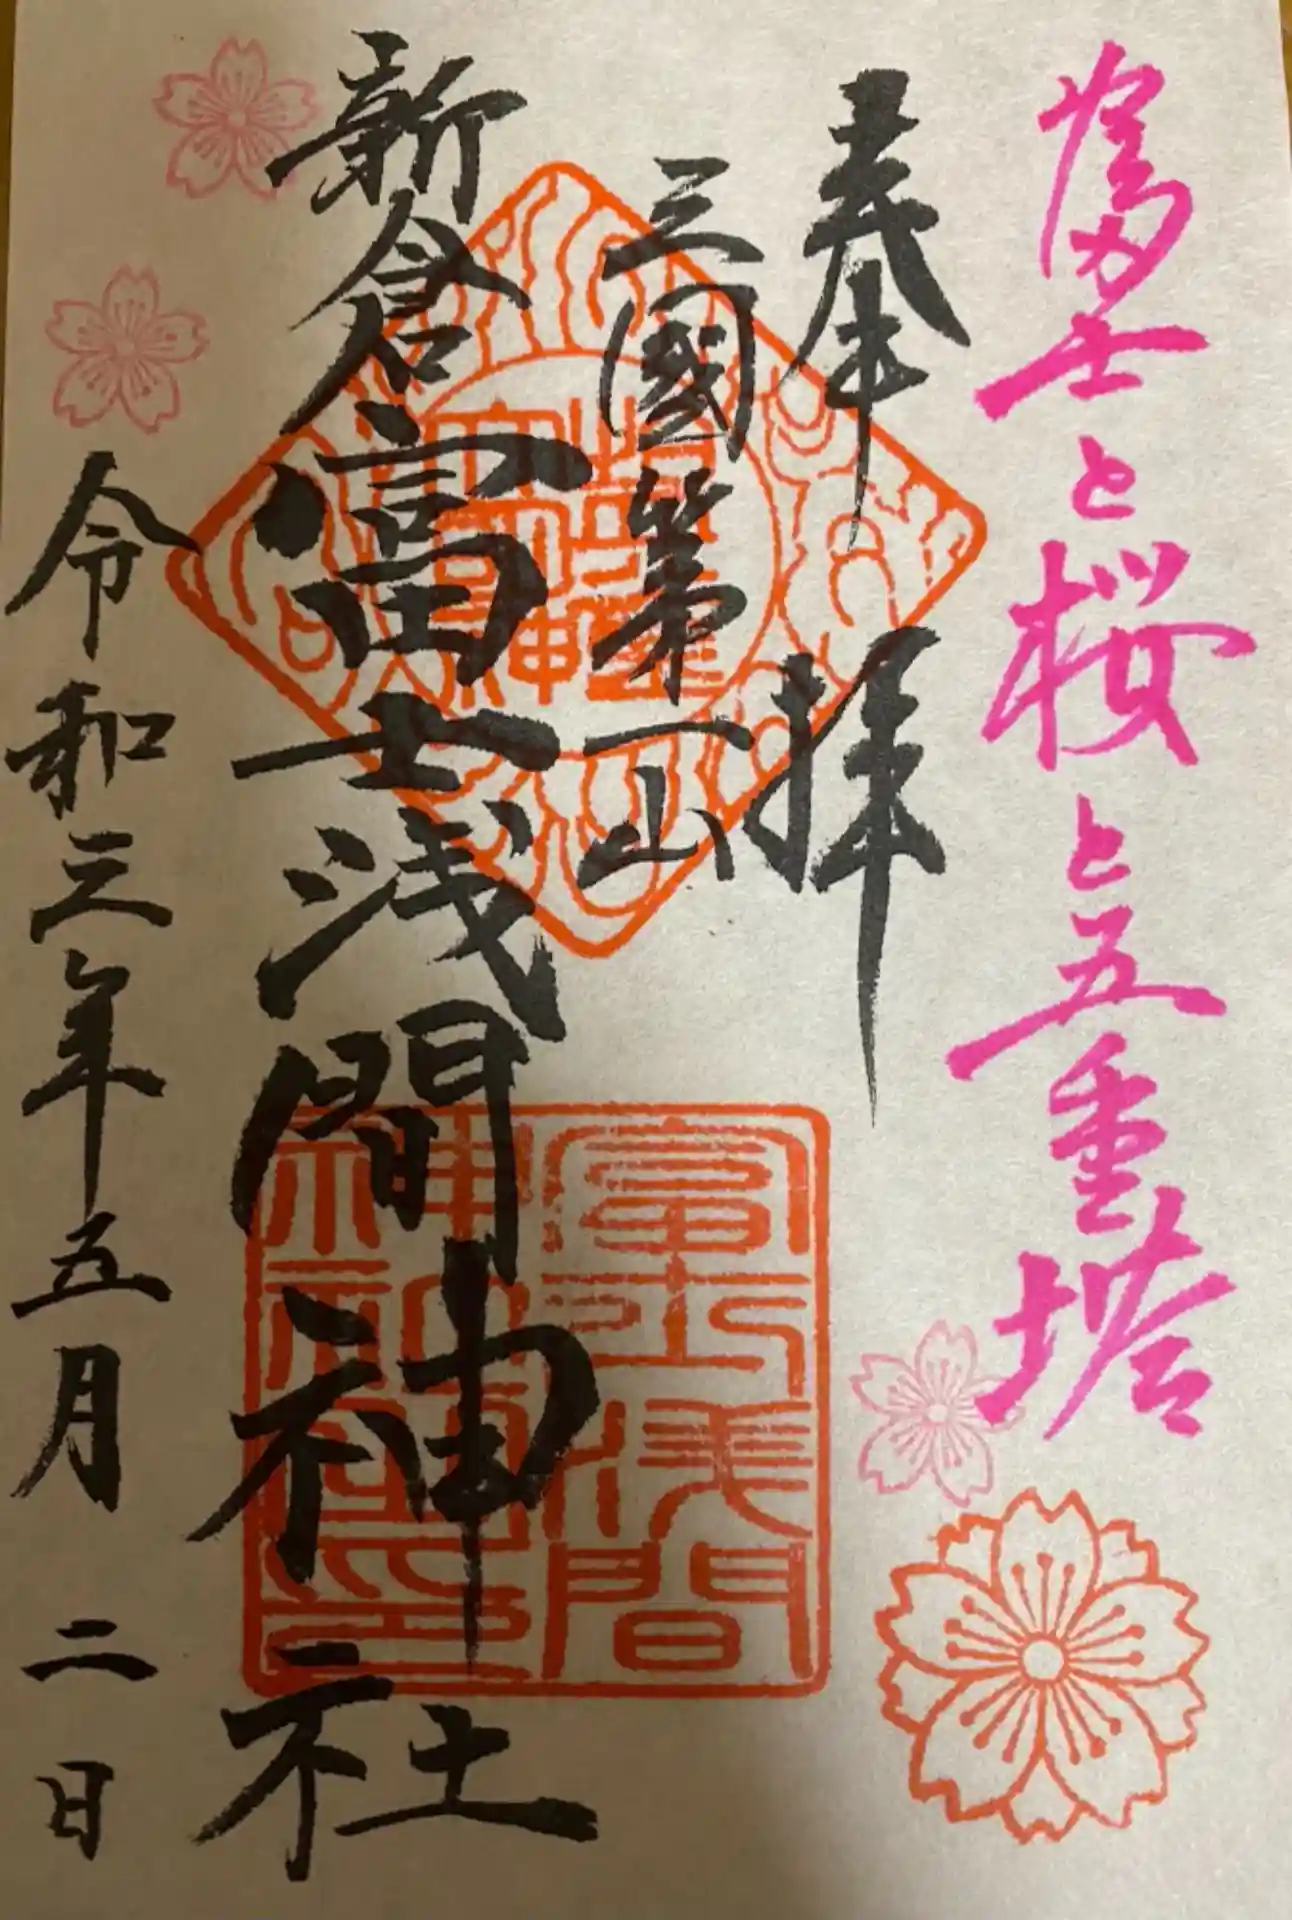 富士と桜と五重塔
奉拝
三國第一山
新倉富士浅間神社
令和三年五月二日
富士浅間
神社